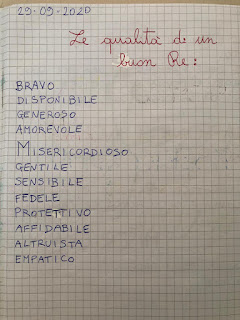 29-09-2020
Le qualità di un
buon Re:
BRAVO
DISPONIBILE
GENEROSO
AMOREVOLE
MISERICORDIOSO
GENTILE
SENSIBILE
FEDELE
PROTETTIVO
AFFIDABILE
ALTRUISTA
EMPATICO